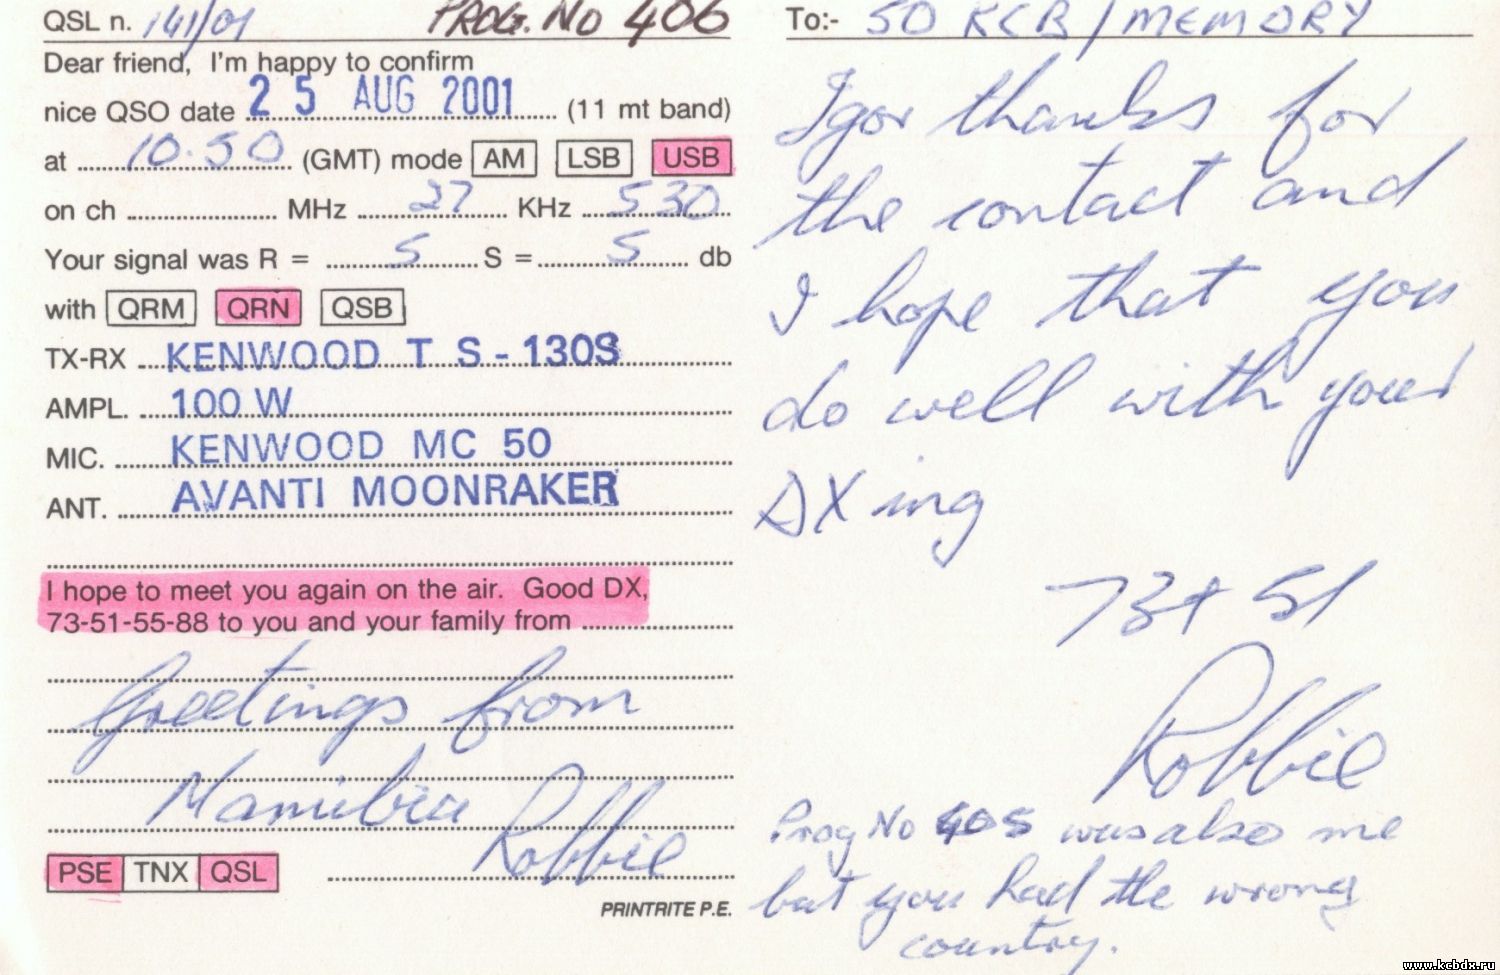 QSL n. 141/01 PROG. No 406
Dear friend, I'm happy to confirm
nice QSO date 25 AUG 2001 (11 mt band)
at 10.50 (GMT) mode AM LSB USB
on ch MHz 27 KHz 530
Your signal was R = 5 S = 5 db
with QRM QRN QSB
TX-RX KENWOOD T S-130S
AMPL. 100 W
MIC. KENWOOD MC 50
ANT. AVANTI MOONRAKER
I hope to meet you again on the air. Good DX,
73-51-55-88 to you and your family from
Greetings from
Namibia Robbie
PSE TNX QSL
PRINTRITE P.E.
To:- 50 KCB/MEMORY
Igor thanks for
the contact and
I hope that you
do well with your
DXing
73+51
Robbie
Prog No 405 was also me
but you had the wrong
country.
www.kcbdx.ru